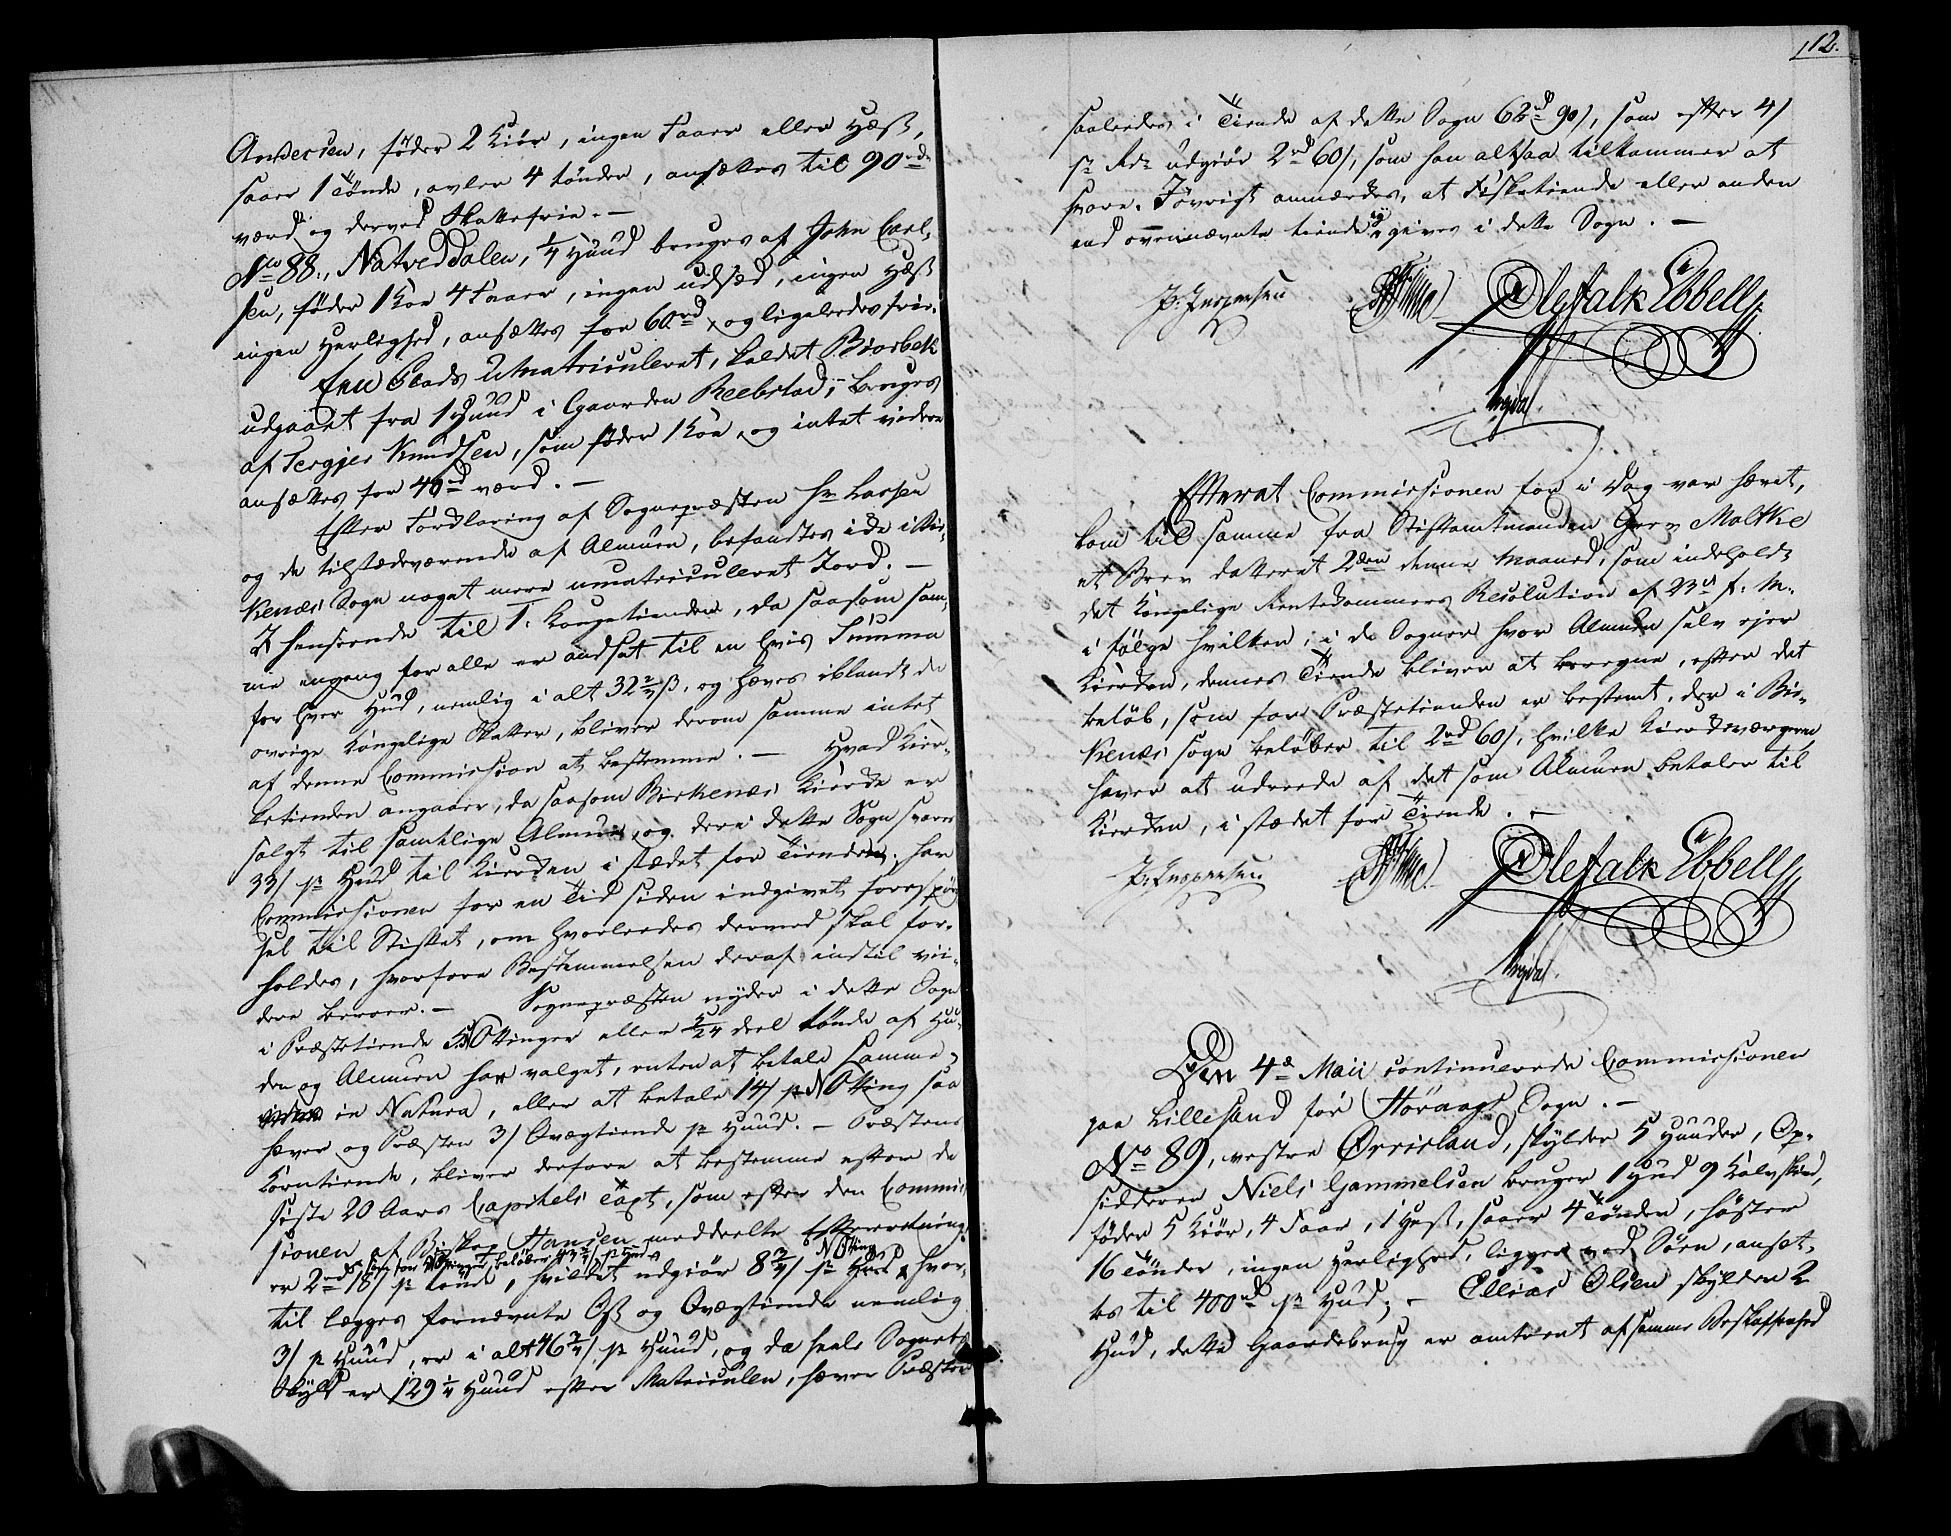 Andersen, föder 2 Kiör, ingen Faarr eller Hæst,
saaer 1 Tönde, avler 4 tönder, ansættes til 90 rd
værd og derved Skattefrie. —
No 88., Natveddalen, 1/4 Huud bruges af John Carl-
sen, föder 1 Koe 4 Faarr, ingen udsæd, ingen Hæst
ingen Herlighed, ansættes for 60 rd, og ligeledes frie.
Enu Plads Umatriculeret, kaldet Biorbek
udgaaet fra 1 Huud i Gaarden Reebstad, bruges
af Tergjer Knudsen, som föder 1 Koe, og intet videre
ansættes for 40 rd værd. —
Efter Forklaring af Sognepræsten Hr Lassen
og de tilstædeværende af Almuen, befandtes icke i Bir-
kenæs Sogn noget mere umatriculeret Jord. —
I henseende til Kongetienden, da saasom sam-
me engang for alle er andsat til en vis Summa
for hver Hud, nemlig i alt 32 2/4 ß, og hæves iblandt de
övrige kongelige Skatter, bliver derom samme intet
af denne Commission at bestemme. — Hvad Kier-
ketienden angaaer, da saasom Birkenæs Kierke er
solgt til samtlige Almue, og der i dette Sogn svares
33/ pr Hud til Kierken i stædet for Tienden, har
Commissionen for en Tid siden indgivet forespör-
sel til Stiftet, om hvorledes dermed skal for-
holdes, hvorfore Bestemmelsen deraf indtil vii-
dere beroer. — Sognepræsten nyder i dette Sogn
i Præstetiende 5 Nöttinger eller 5/24 deel tönde af Hu-
den og Almuen har valget, enten at betale samme
in Natura, eller at betale 14/ pr Nötting saa
hæver og Præsten 3/ Qvægtiende pr Huud. — Præstens
Korntiende, bliver derfore at bestemme efter de
siste 20 Aars Capitels Taxt, som efter den Commis-
sionen af Biskop Hansen meddeelte Efterretning
er 2 rd 18/ pr tönde, hvilket udgiör 8 3/4/ pr Nötting, hvor-
til lægges fornævnte Ost og Qvægtiende nemlig
3/ pr Huud, er i alt 46 3/4/ pr Huud, og da heele Sognets
Skyld er 129 1/4 Huud efter Matriculen, hæver Præsten
112.
saaledes i Tiende af dette Sogn 62 rd 90/, som efter 4/
pr Rdr udgiör 2 rd 60/, som han altsaa tilkommer at
svare. Jövrigt anmærkes, at Fisketiende eller anden
end ovennævnte tiende ey gives i dette Sogn. —
P. Jespersen Ole Falk Ebbell
Efterat Commissionen for i Dag var hævet,
kom til samme fra Stiftamtmanden Grev Moltke
et Brev datteret 2den denne Maaned, som indeholdt
det kongelige Rentekammers Resolution af 23 d f. M.
i fölge hvilken, i de Sogner hvor Almuen selv ejer
Kierken, dennes Tiende bliver at beregne, efter det
belöb, som for Præstetienden er bestemt, der i Bir-
kenæs sogn belöber til 2 rd 60/, hvilke Kierkeværgerne
haver at udreede af det som Almuen betaler til
Kierken, i stædet for Tiende. —
P. Jespersen Ole Falk Ebbell
Den 4de Maii continuerede Commissionen
paa Lillesand for Höraags Sogn. —
No 89, vestre Örrisland, skylder 5 Huuder, Op-
sidderen Niels Gammelsen bruger 1 Hud 9 Kalvskind,
föder 5 Kiör, 4 Faar, 1 Hest, saaer 4 Tönder, höster
16 Tönder, ingen Herlighed, ligger ved Söen, ansæt-
tes til 400 rd pr Hud; — Ellias Olsen skylder 2
Hud, dette Gaardebrug er omtrent af samme Beskaffenhed